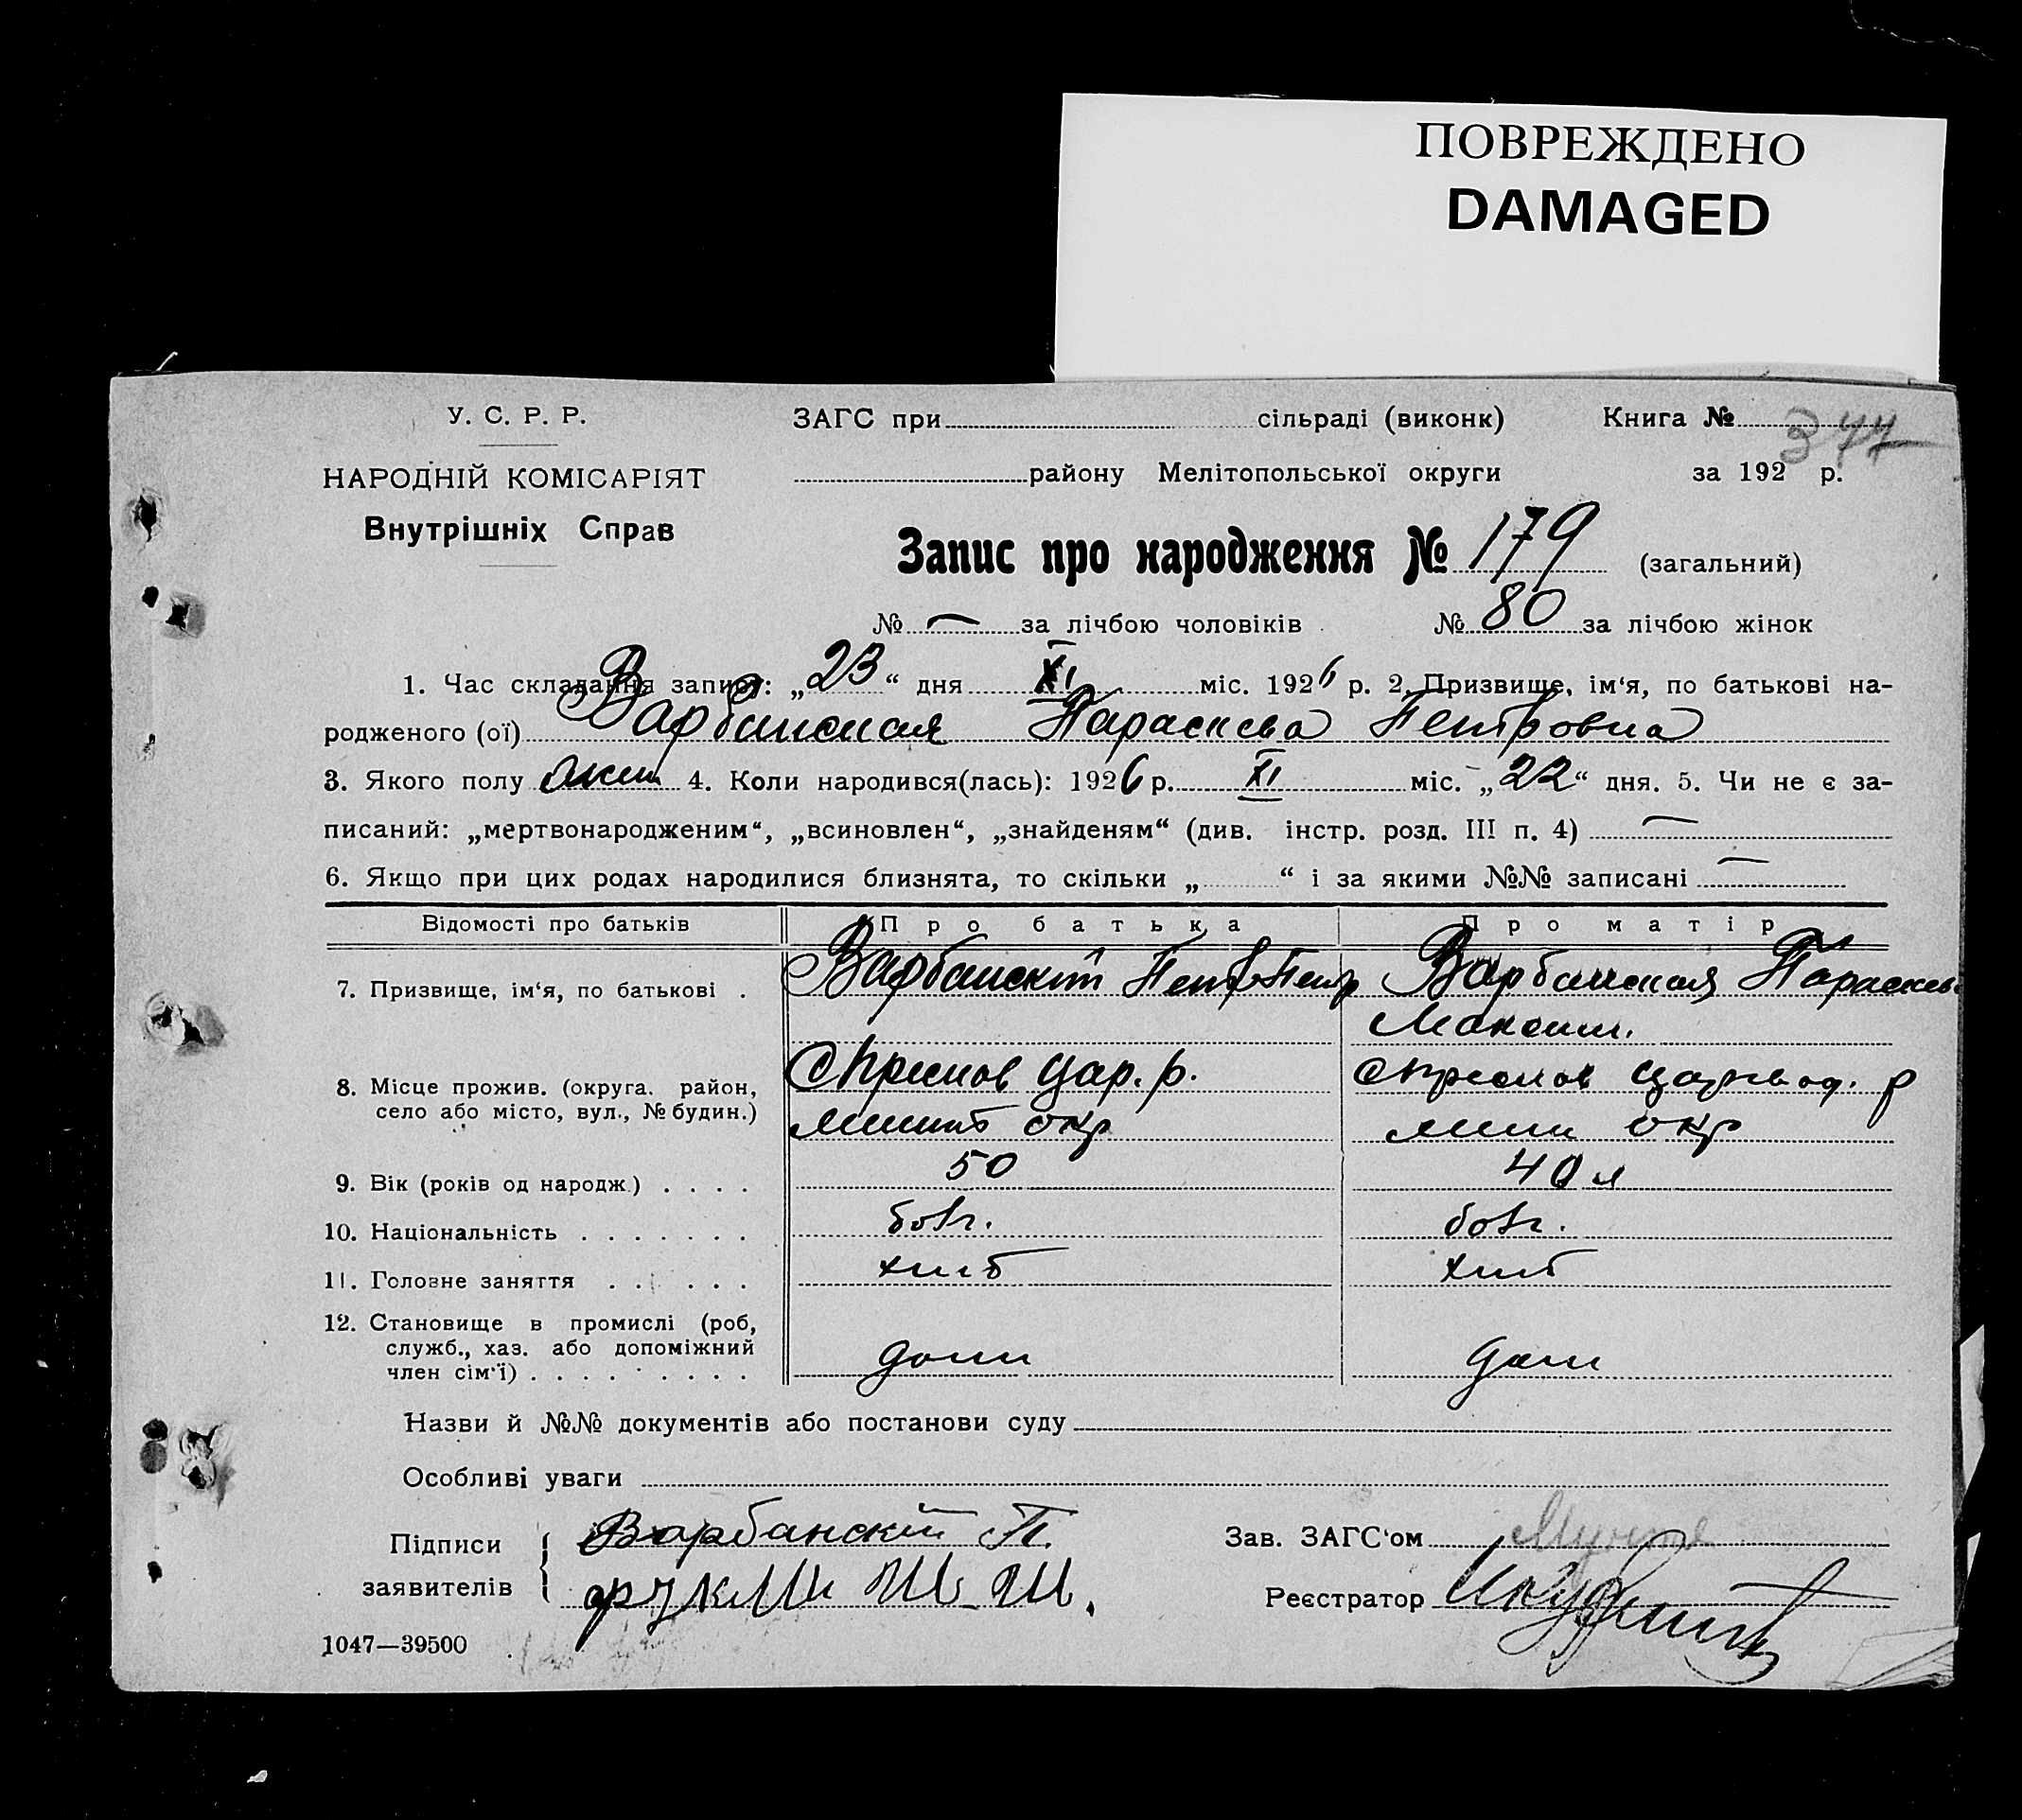 ПОВРЕЖДЕНО
DAMAGED
У. С. Р. Р.
НАРОДНІЙ КОМІСАРІЯТ
Внутрішніх Справ
ЗАГС при сільраді (виконк) Книга №
377
району Мелітопольської округи за 192 р.
Запис про народження № 179 (загальний)
№ — за лічбою чоловіків № 80 за лічбою жінок
1. Час складання запису: „23“ дня XI міс. 1926 р. 2. Призвище, ім‘я, по батькові на-
родженого (ої) Варбанская Параскева Петровна
3. Якого полу жен 4. Коли народився(лась): 1926 р. XI міс. „22“ дня. 5. Чи не є за-
писаний: „мертвонародженим“, „всиновлен“, „знайденям“ (див. інстр. розд. III п. 4) —
6. Якщо при цих родах народилися близнята, то скільки „ “ і за якими №№ записані —
Відомості про батьків Про батька Про матір
7. Призвище, ім‘я, по батькові . Варбанскій Петр Петр Варбанская Параскев
Максим.
8. Місце прожив. (округа. район, село або місто, вул., № будин.) Цар. р. р
окр мели окр
9. Вік (років од народж.) . . . . 50 40 л
10. Національність . . . . . . . болг. болг.
11. Головне заняття . . . . . . хліб хліб
12. Становище в промислі (роб,
служб., хаз. або допоміжний
член сім‘ї) . . . . . . . . .
Назви й №№ документів або постанови суду
Особливі уваги
Підписи заявителів Варбанскій П.
Зав. ЗАГС‘ом
Реєстратор
1047—39500